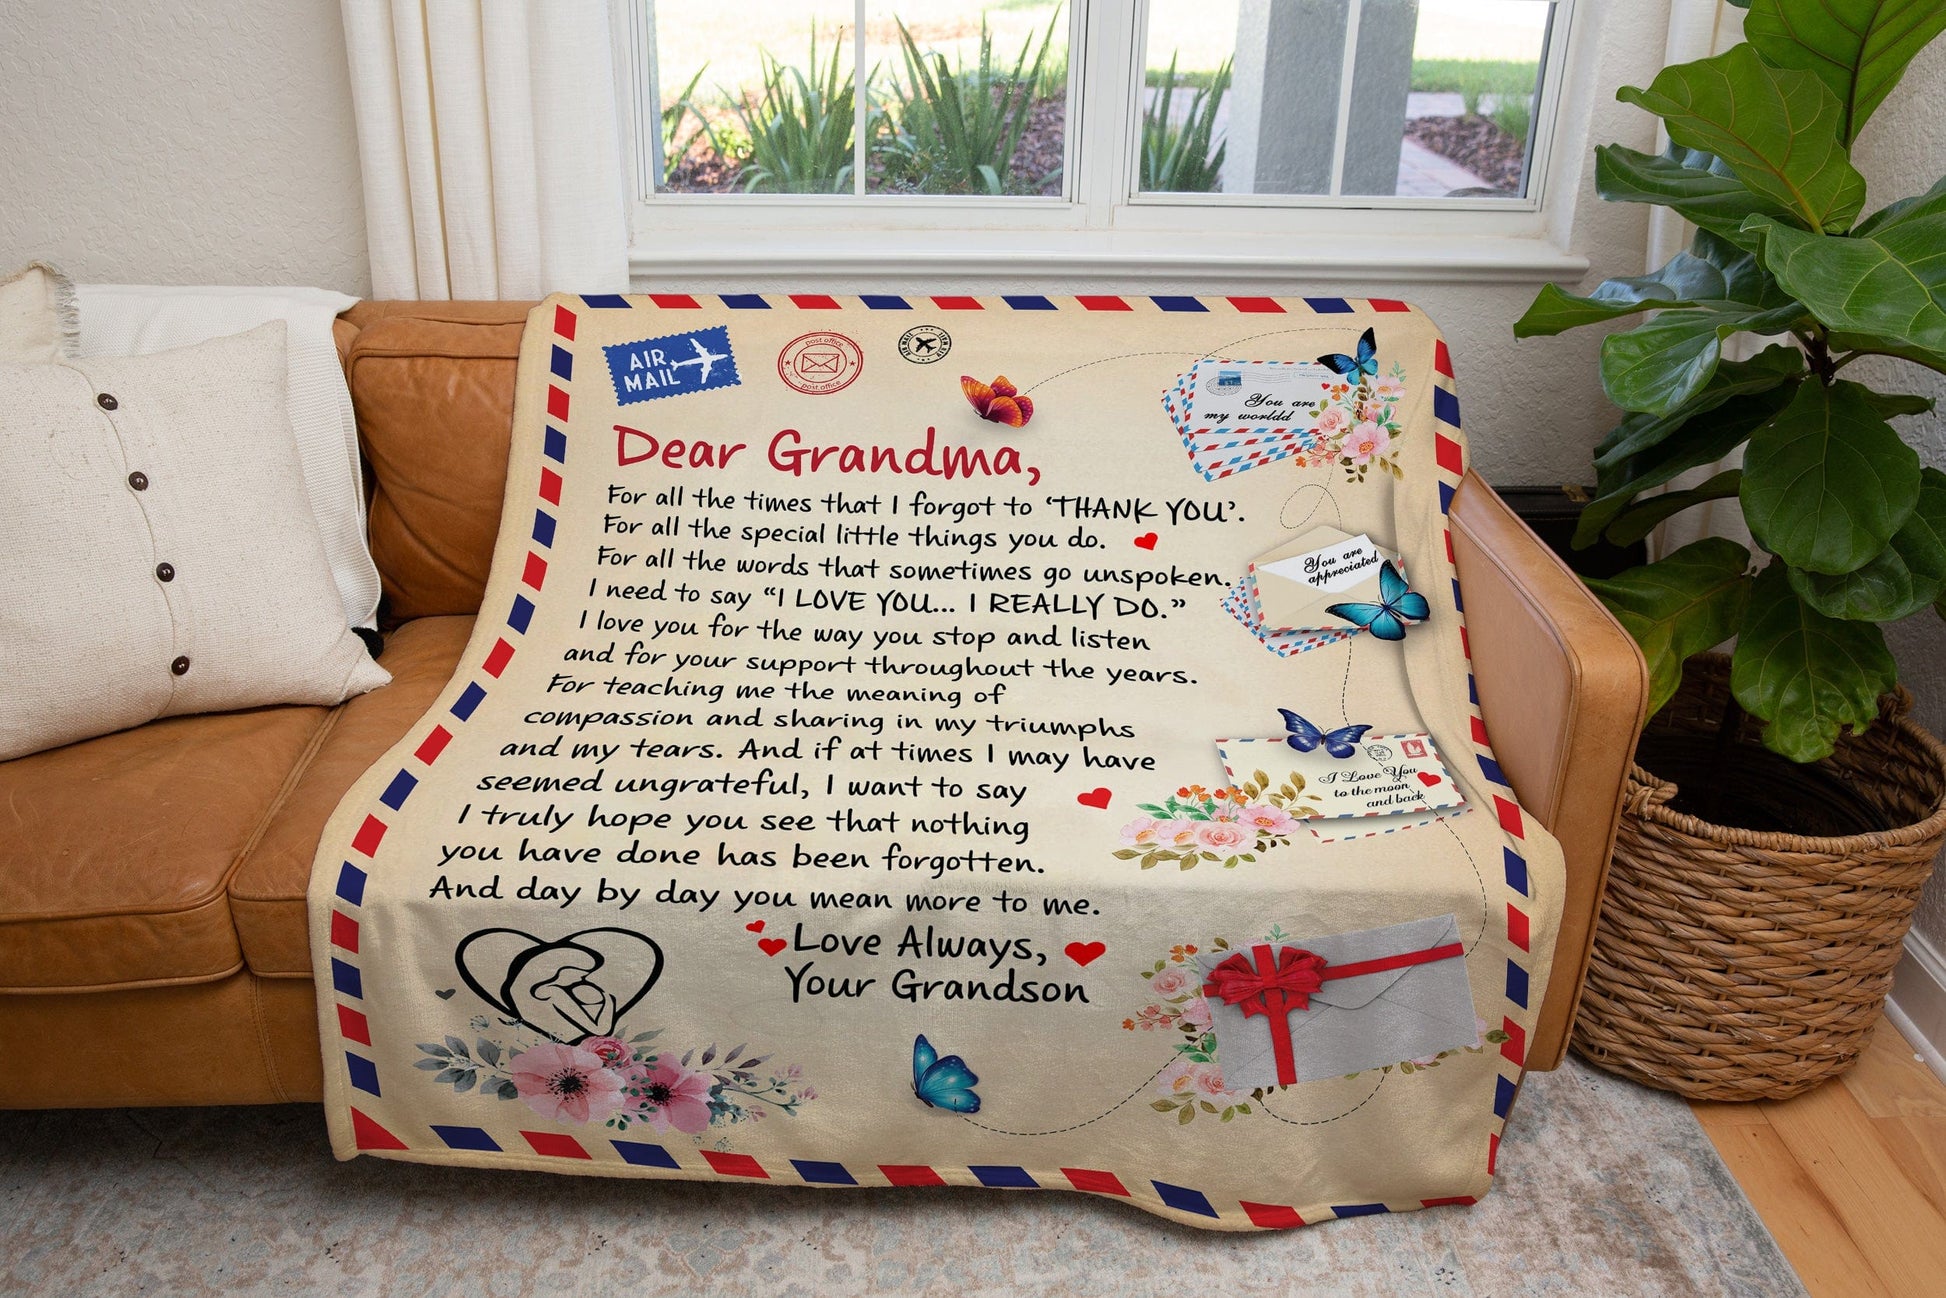 AIR
MAIL
post office
post office
AIR MAIL
You are
my worldd
Dear Grandma,
For all the times that I forgot to ‘THANK YOU’.
For all the special little things you do.
For all the words that sometimes go unspoken.
I need to say “I LOVE YOU... I REALLY DO.”
I love you for the way you stop and listen
and for your support throughout the years.
For teaching me the meaning of
compassion and sharing in my triumphs
and my tears. And if at times I may have
seemed ungrateful, I want to say
I truly hope you see that nothing
you have done has been forgotten.
And day by day you mean more to me.
Love Always,
Your Grandson
You are
appreciated
I Love You
to the moon
and back